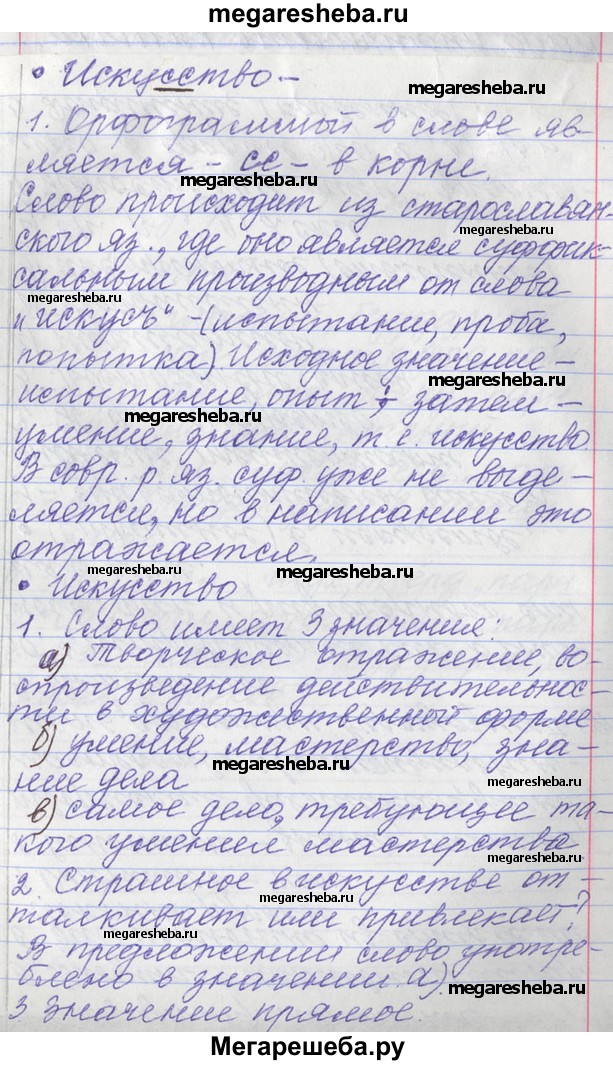 megaresheba.ru
• Искусство –
megaresheba.ru
1. Орфограммой в слове яв-
ляется – сс – в корне.
megaresheba.ru
Слово происходит из старославян
megaresheba.ru
ского яз., где оно является суффик-
сальным производным от слова
megaresheba.ru
„искусъ" – (испытание, проба,
попытка) Исходное значение –
megaresheba.ru
испытание, опыт, затем –
megaresheba.ru
умение, знание, т е. искусство
В совр. р. яз. суф. уже не выде-
ляется, но в написании это
отражается.
megaresheba.ru
• Искусство
1. Слово имеет 3 значения:
а) Творческое отражение, во-
спроизведение действительнос-
ти в художественной форме
б) умение, мастерство, зна-
megaresheba.ru
ние дела
в) самое дело, требующее та-
megaresheba.ru
кого умения мастерства
megaresheba.ru
2 Страшное в искусстве от-
талкивает или привлекает?
megaresheba.ru
В предложении слово употре-
блено в значении а)
megaresheba.ru
3 Значение прямое.
Мегарешеба.ру